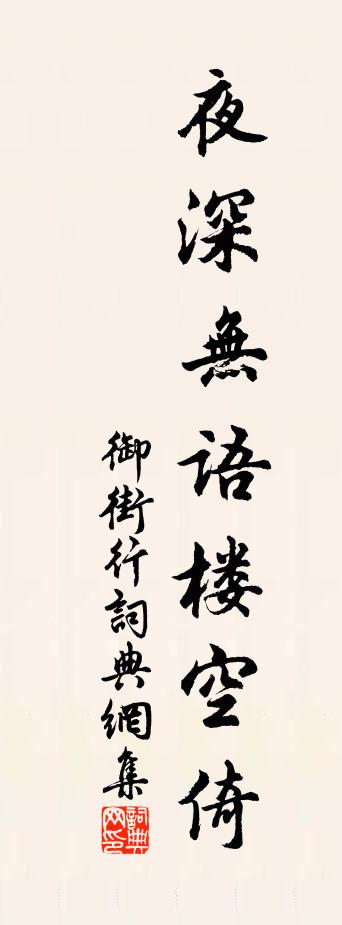 夜深無語楼空倚
御街行詞典網集
詞典
网印